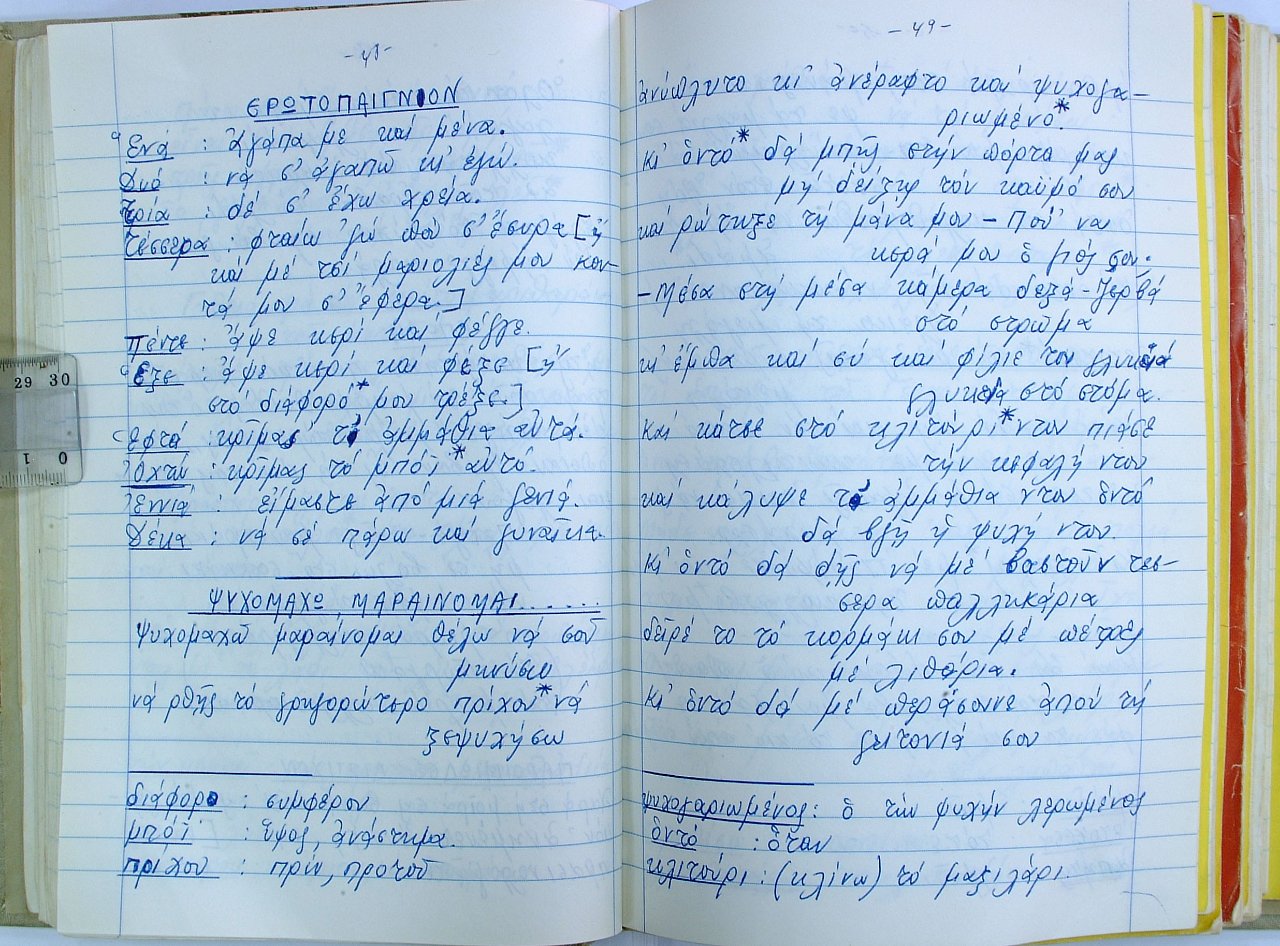 -48-
ΕΡΩΤΟΠΑΙΓΝΙΟΝ
"Ενα : Ἀγάπα με καί μένα.
Δυό : νά σ' ἀγαπῶ κι' ἐγώ.
Τρία : δέ σ' ἔχω χρεία.
Τέσσερα : φταίω 'γώ πού σ' ἔσυρα [ἤ
καί μέ τσί μαριολιές μου κον-
τά μου σ' ἔφερα.]
Πέντε : ἄψε κερί καί φέγγε.
Ἕξε : ἄψε κερί καί φέξε [ἤ
στό διάφορό* μου τρέξε.]
Ἑφτά : κρῖμας τά ἀμμάθια αὐτά.
Ὀχτώ : κρῖμας τό μπόϊ* αὐτό.
Ἐννιά : εἴμαστε ἀπό μιά γενιά.
Δέκα : νά σέ πάρω καί γυναῖκα.
ΨΥΧΟΜΑΧΩ, ΜΑΡΑΙΝΟΜΑΙ......
Ψυχομαχῶ μαραίνομαι θέλω νά σοῦ
μηνύσω
νά ρθῆς τό γρηγορώτερο πρίχου* νά
ξεψυχήσω
διάφορο : συμφέρον
μπόϊ : ὕψος, ἀνάστημα.
πρίχου : πρίν, προτοῦ
-49-
ἀνύπλυτο κι' ἀνέραφτο καί ψυχογα-
ριωμένο*.
Κι' ὀντό* δά μπῆς στήν πόρτα μας
μή δείξης τόν καϋμό σου
καί ρώτηξε τή μάνα μου - Πού ναι
κερά μου ὁ γιός σου.
-Μέσα στή μέσα κάμερα δεξά-ζερβά
στό στρῶμα
κι' ἔμπα καί σύ καί φίλιε τον γλυκειά
γλυκειά στό στόμα.
Καί κάτσε στό κλιτούρι* ντου πιάσε
τήν κεφαλή ντου
καί κάλυψε τά ἀμμάθια ντου ὀντό
δά βγῆ ἡ ψυχή ντου.
Κι' ὀντό δά δῆς νά μέ βαστοῦν τεσ-
σερα παλληκάρια
δεῖρέ το τό κορμάκι σου μέ πέτρες
μέ λιθάρια.
Κι' ὀντό δά μέ περάσουνε ἀπού τή
γειτονιά σου
ψυχογαριωμένος : ὁ τήν ψυχήν λερωμένος
ὀντό : ὅταν
κλιτούρι : (κλίνω) τό μαξιλάρι.
29 30
1 0